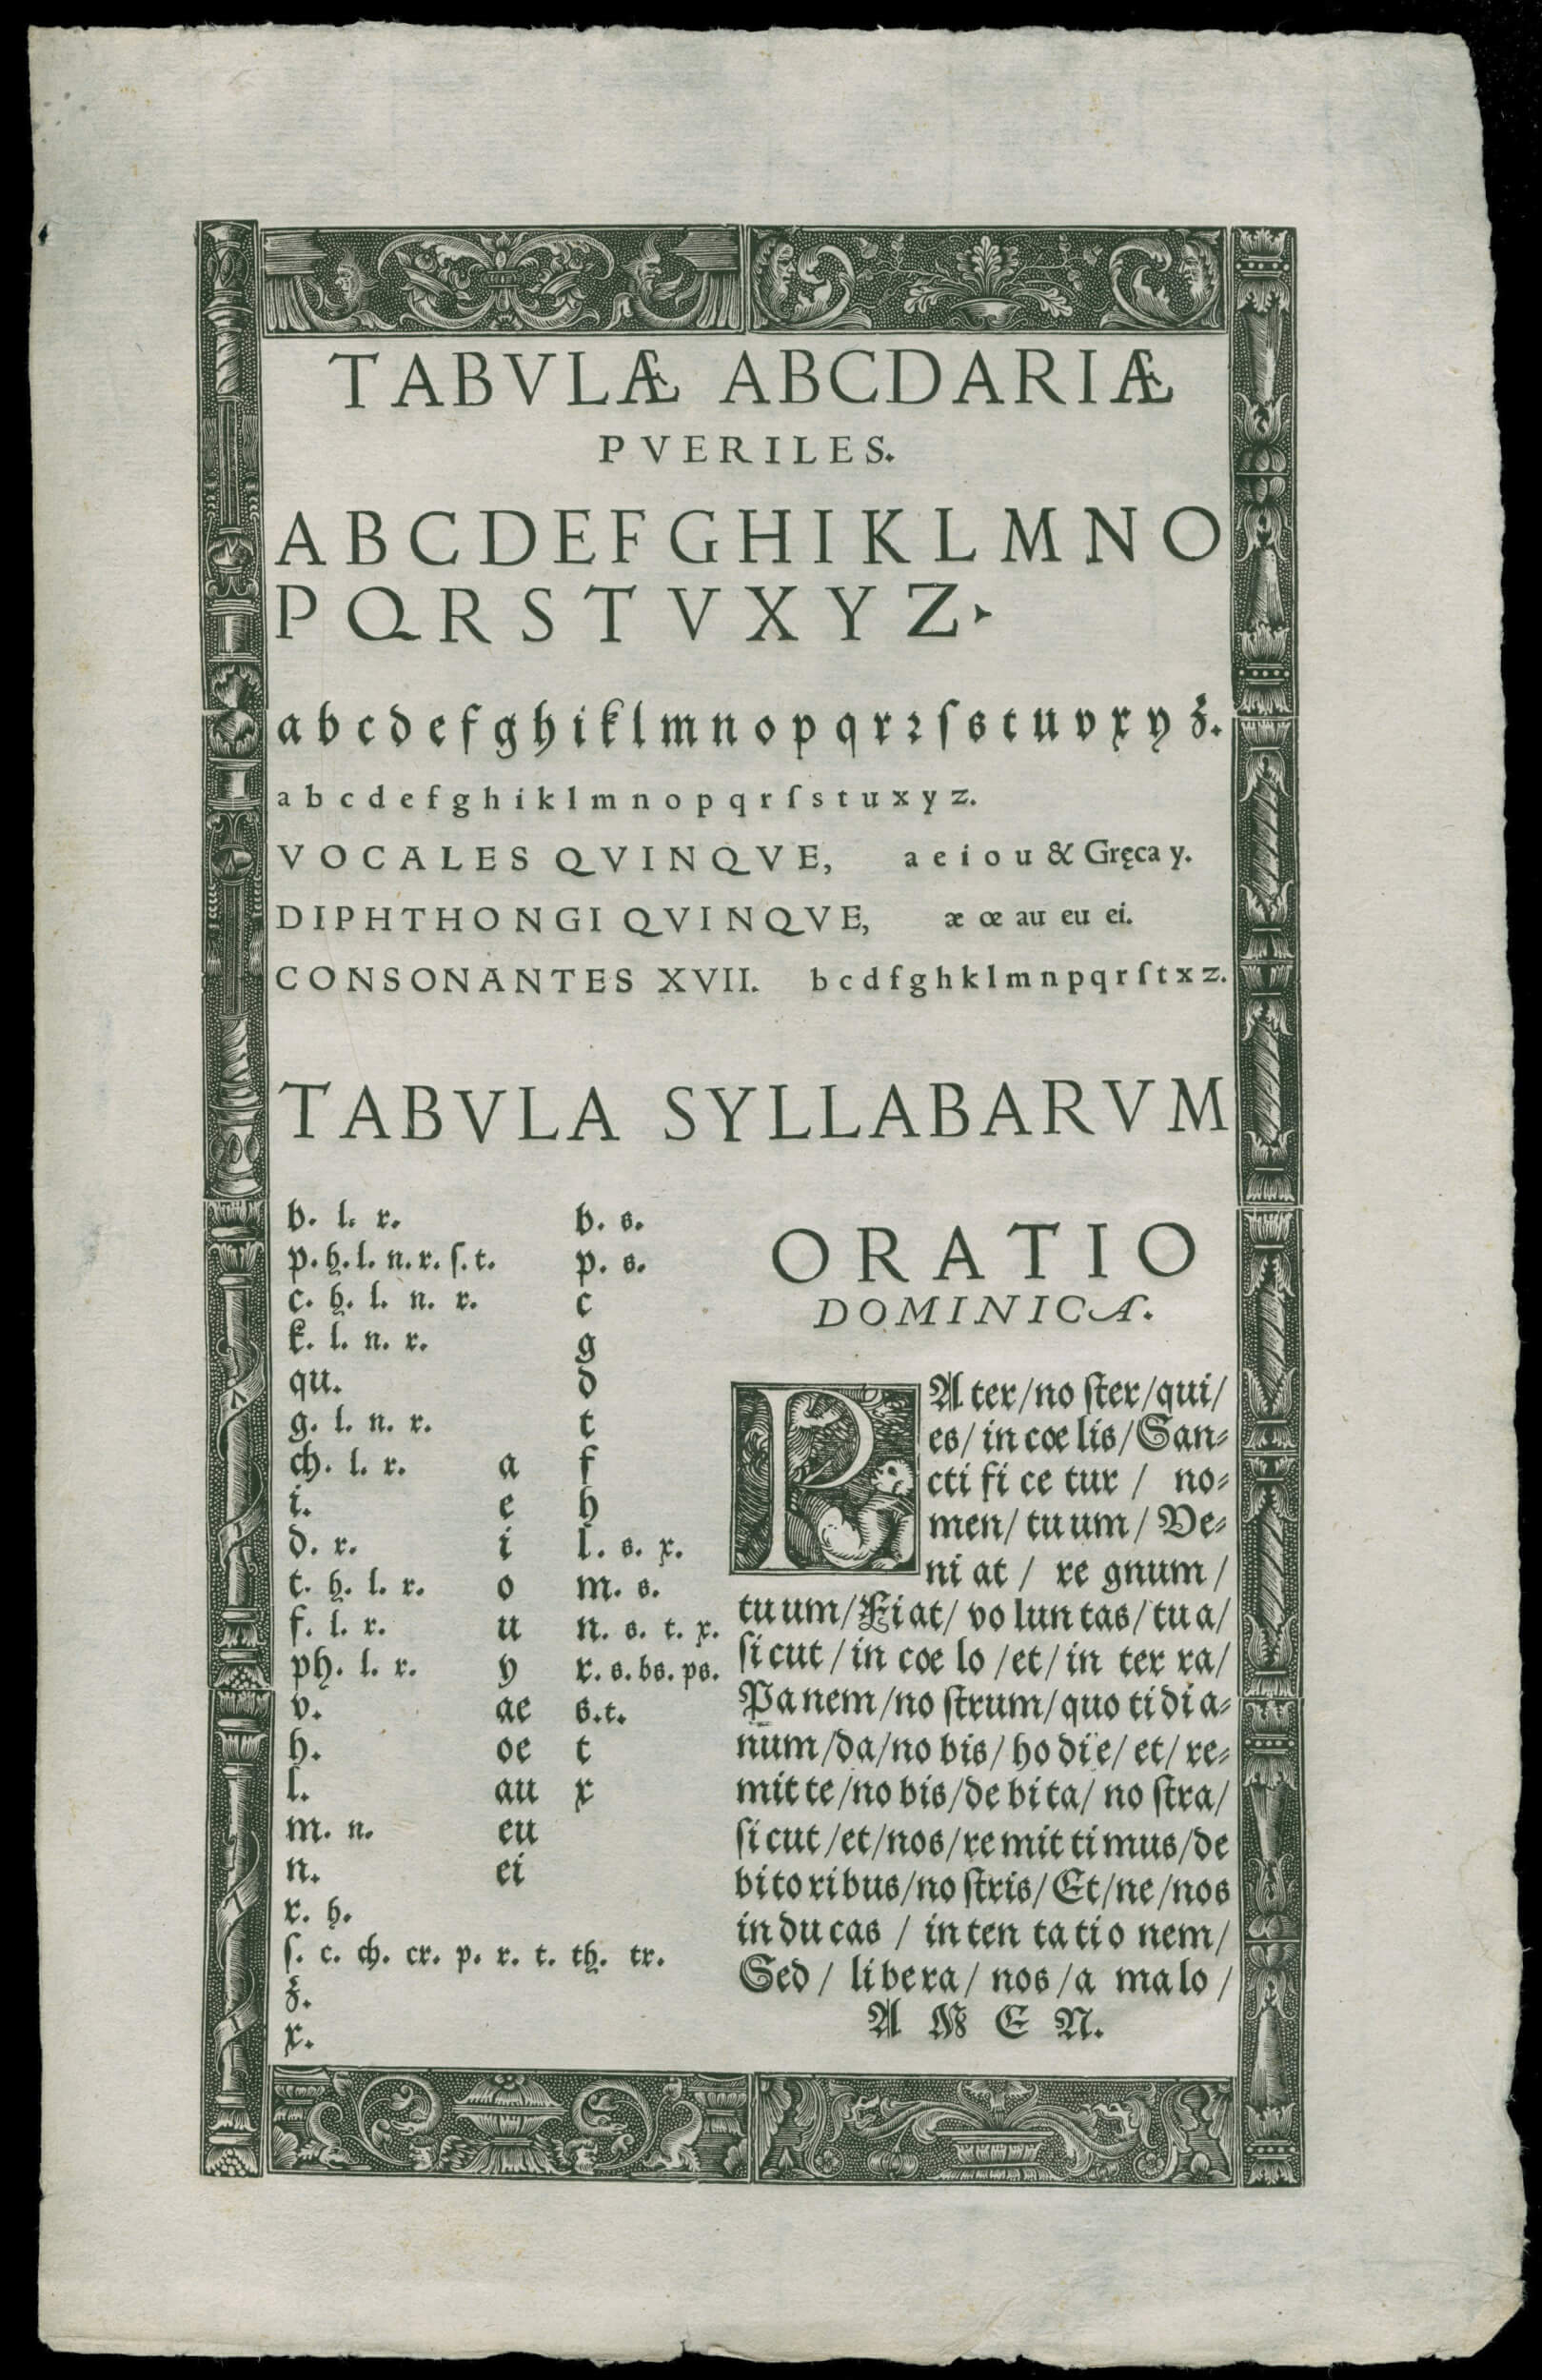 TABVLÆ ABCDARIÆ
PVERILES.
A B C D E F G H I K L M N O
P Q R S T V X Y Z.
a b c d e f g h i k l m n o p q r ꝛ ſ s t u v x y z.
a b c d e f g h i k l m n o p q r ſ s t u x y z.
VOCALES QVINQVE, a e i o u & Gręca y.
DIPHTHONGI QVINQVE, æ œ au eu ei.
CONSONANTES XVII. b c d f g h k l m n p q r ſ t x z.
TABVLA SYLLABARVM
b. l. r. b. s.
p. h. l. n. r. ſ. t. p. s.
c. h. l. n. r. c
k. l. n. r. g
qu. d
g. l. n. r. t
ch. l. r. a f
i. e h
d. r. i l. s. x.
t. h. l. r. o m. s.
f. l. r. u n. s. t. x.
ph. l. r. y r. s. bs. ps.
v. ae s. t.
h. oe t
l. au x
m. n. eu
n. ei
r. h.
ſ. c. ch. cr. p. r. t. th. tr.
z.
x.
ORATIO
DOMINICA.
PA ter/no ſter/qui/
es/ in cœ lis/San⸗
cti fi ce tur / no⸗
men/ tu um / Ve⸗
ni at / re gnum /
tu um/Fi at/ vo lun tas/tu a/
ſi cut / in coe lo /et/ in ter ra/
Pa nem /no ſtrum/ quo ti di a⸗
num /da/no bis/ ho dïe/ et/ re⸗
mit te /no bis/de bi ta/ no ſtra/
ſi cut /et/nos/re mit ti mus/de
bi to ri bus/no ſtris/ Et/ne /nos
in du cas / in ten ta ti o nem/
Sed / li be ra/ nos /a ma lo /
A M E N.